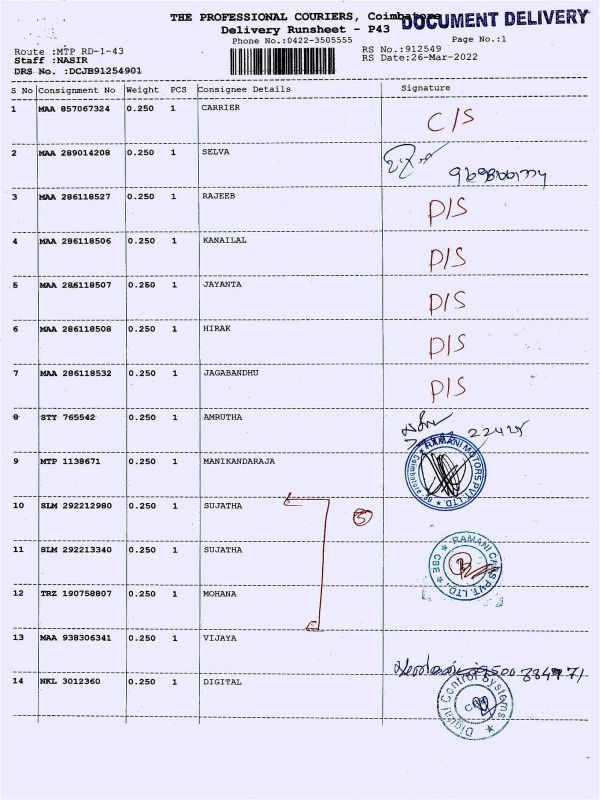 THE PROFESSIONAL COURIERS, Coimbatore
DOCUMENT DELIVERY
Delivery Runsheet - P43
Phone No.:0422-3505555
Page No.:1
Route :MTP RD-1-43
RS No.:912549
Staff :NASIR
RS Date:26-Mar-2022
DRS No. :DCJB91254901
S No Consignment No Weight PCS Consignee Details Signature
1 MAA 857067324 0.250 1 CARRIER C/S
2 MAA 289014208 0.250 1 SELVA
3 MAA 286118527 0.250 1 RAJEEB D/S
4 MAA 286118506 0.250 1 KANAILAL D/S
5 MAA 286118507 0.250 1 JAYANTA D/S
6 MAA 286118508 0.250 1 HIRAK D/S
7 MAA 286118532 0.250 1 JAGABANDHU D/S
8 STY 765542 0.250 1 AMRUTHA
9 MTP 1138671 0.250 1 MANIKANDARAJA
RAMANI MOTORS PVT. LTD.
10 SLM 292212980 0.250 1 SUJATHA
11 SLM 292213340 0.250 1 SUJATHA
RAMANI CARS PVT. LTD. CBE
12 TRZ 190758807 0.250 1 MOHANA
13 MAA 938306341 0.250 1 VIJAYA
14 NKL 3012360 0.250 1 DIGITAL
Digital Control Systems